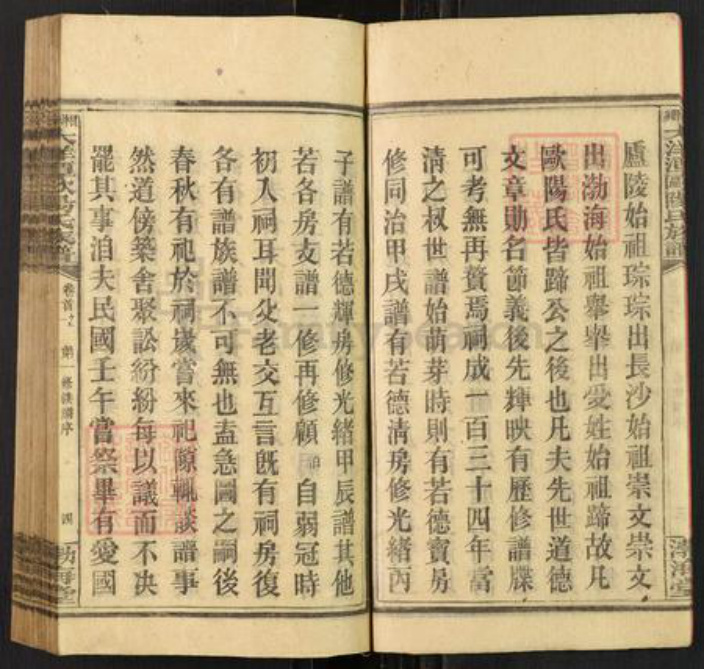 廬陵始祖琮琮出長沙始祖崇文崇文
出渤海始祖舉舉出受姓始祖蹄故凡
歐陽氏皆蹄公之後也凡夫先世道德
文章勛名節義後先輝映有歷修譜牒
可考無再贅焉祠成一百三十四年當
清之叔世譜始萌芽時則有若德賓房
修同治甲戌譜有若德清房修光緒丙
子譜有若德輝房修光緒甲辰譜其他
若各房支譜一修再修顧 自弱冠時
初入祠耳聞父老交互言旣有祠房復
各有譜族譜不可無也盍急圖之嗣後
春秋有祀於祠歲嘗來祀餘輒談譜事
然道傍築舍聚訟紛紛每以議而不决
罷其事洎夫民國壬午嘗祭畢有愛國
卷首之 第一修族譜序
四
渤海堂